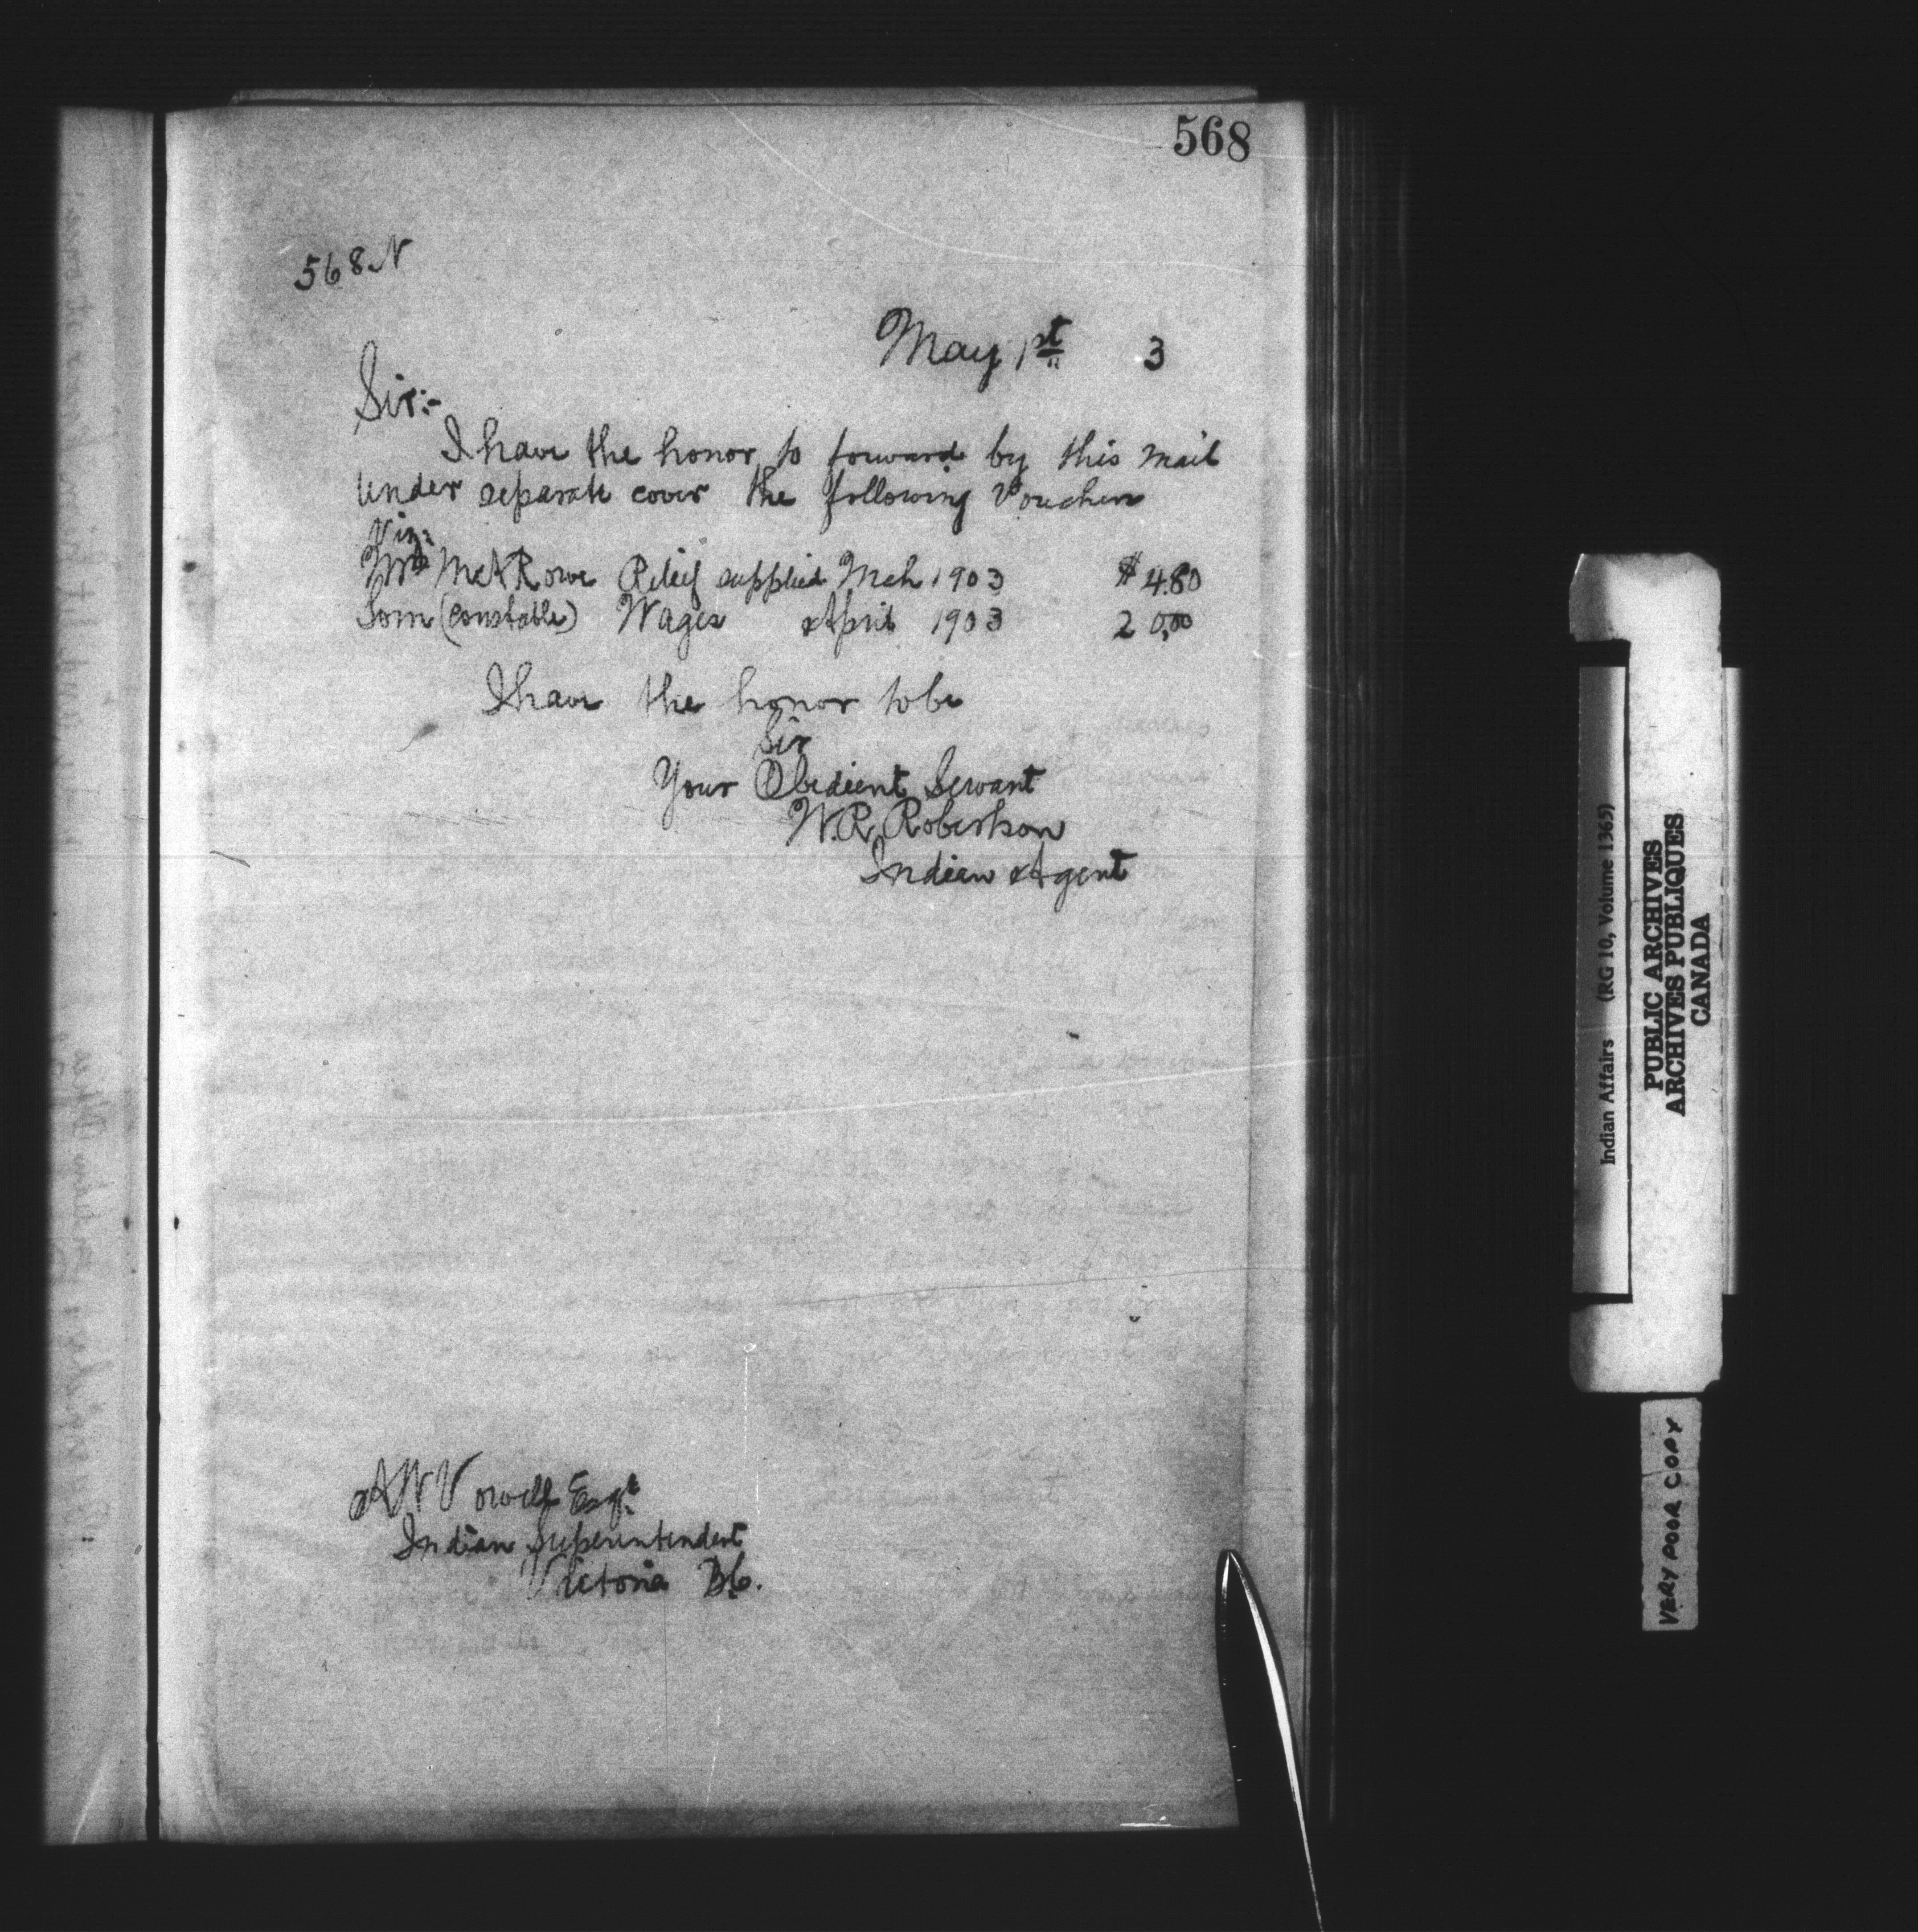 568
568 N
May 1st 3
Sir:-
I have the honor to forward by this mail
under separate cover the following Vouchers
Viz:
Mrs Rowe Relief supplied Mch 1903 $ 4.80
(constable) Wages April 1903 20,00
I have the honor to be
Sir
Your Obedient Servant
W.R. Robertson
Indian Agent
A W Vowell Esqr.
Indian Superintendent
Victoria B.C.
Indian Affairs (RG 10, Volume 1365)
PUBLIC ARCHIVES
ARCHIVES PUBLIQUES
CANADA
VERY POOR COPY